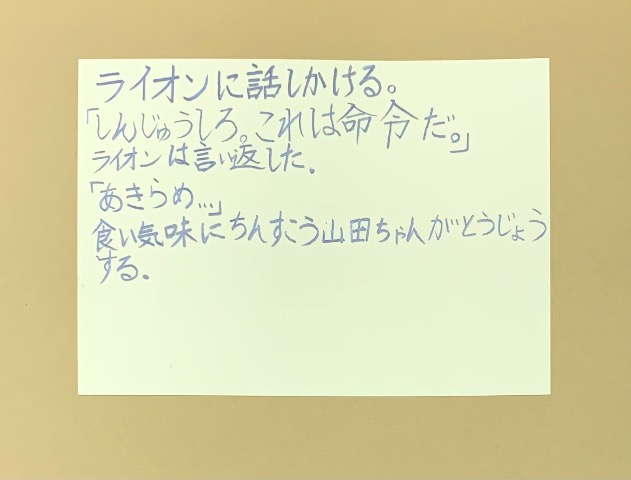 ライオンに話しかける。
「しんじゅうしろ。これは命令だ。」
ライオンは言い返した。
「あきらめ…」
食い気味にちんすこう山田ちゃんがとうじょう
する。